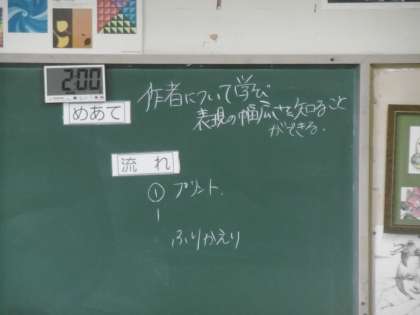 2:00
めあて
作者について学び
表現の幅広さを知ること
ができる.
流れ
① プリント.
ふりかえり